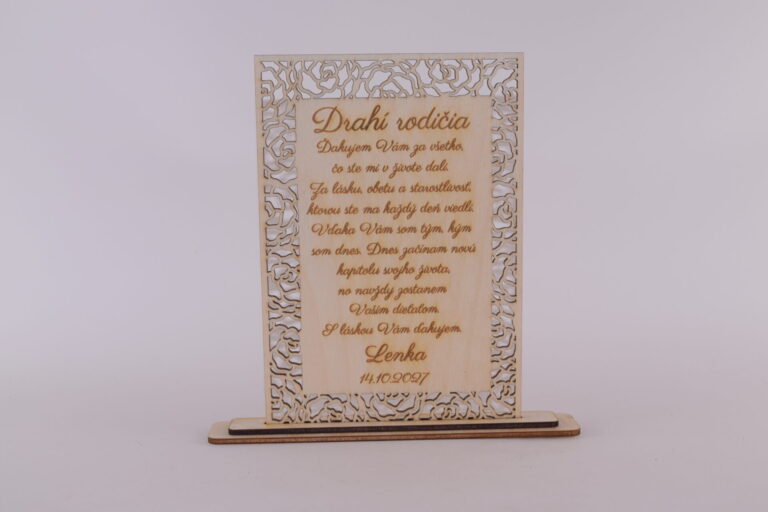 Drahí rodičia
Ďakujem Vám za všetko,
čo ste mi v živote dali.
Za lásku, obetu a starostlivosť,
ktorou ste ma každý deň viedli.
Vďaka Vám som tým, kým
som dnes. Dnes začínam novú
kapitolu svojho života,
no navždy zostanem
Vaším dieťaťom.
S láskou Vám ďakujem,
Lenka
14.10.2027